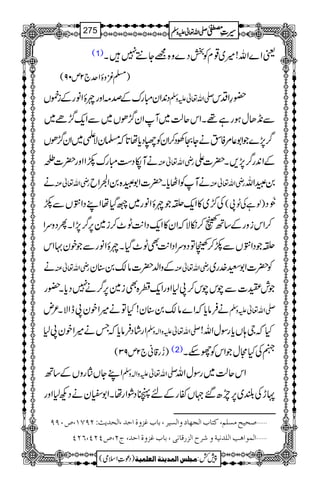 سیرتِ مصطفیٰ صلی اللہ تعالیٰ علیہ وسلم 275
یعنی اے اللہ! میری قوم کو بخش دے وہ مجھے جانتے نہیں ہیں۔ (1)
(مسلم غزوۂ احد ج۲ ص۹۰)
حضور اقدس صلی اللہ تعالیٰ علیہ وسلم دندان مبارک کے صدمہ اور چہرۂ انور کے زخموں
سے نڈھال ہو رہے تھے۔ اس حالت میں آپ ان گڑھوں میں سے ایک گڑھے میں
گر پڑے جو ابوعامر فاسق نے جابجا کھود کر ان کو چھپا دیا تھا تاکہ مسلمان لاعلمی میں ان گڑھوں
کے اندر گر پڑیں۔ حضرت علی رضی اللہ تعالیٰ عنہ نے آپ کا دست مبارک پکڑا اور حضرت طلحہ
بن عبیداللہ رضی اللہ تعالیٰ عنہ نے آپ کو اٹھایا۔ حضرت ابوعبیدہ بن الجراح رضی اللہ تعالیٰ عنہ نے
خود (لوہے کی ٹوپی) کی کڑی کا ایک حلقہ جو چہرۂ انور میں چبھ گیا تھا اپنے دانتوں سے پکڑ
کر اس زور کے ساتھ کھینچ کر نکالا کہ ان کا ایک دانت ٹوٹ کر زمین پر گر پڑا۔ پھر دوسرا
حلقہ جو دانتوں سے پکڑ کر کھینچا تو دوسرا دانت بھی ٹوٹ گیا۔ چہرۂ انور سے جو خون بہا اس
کو حضرت ابوسعید خدری رضی اللہ تعالیٰ عنہ کے والد حضرت مالک بن سنان رضی اللہ تعالیٰ عنہ نے
جوش عقیدت سے چوس چوس کر پی لیا اور ایک قطرہ بھی زمین پر گرنے نہیں دیا۔ حضور
صلی اللہ تعالیٰ علیہ وسلم نے فرمایا کہ اے مالک بن سنان! کیا تو نے میرا خون پی ڈالا۔ عرض
کیا کہ جی ہاں یا رسول اللہ! صلی اللہ تعالیٰ علیہ والہ وسلم ارشاد فرمایا کہ جس نے میرا خون پی لیا
جہنم کی کیا مجال جو اس کو چھو سکے۔ (2) (زرقانی ج۲ ص۳۹)
اس حالت میں رسول اللہ صلی اللہ تعالیٰ علیہ والہ وسلم اپنے جاں نثاروں کے ساتھ
پہاڑ کی بلندی پر چڑھ گئے جہاں کفار کے لئے پہنچنا دشوار تھا۔ ابوسفیان نے دیکھ لیا اور
صحیح مسلم، کتاب الجهاد والسیر، باب غزوة احد، الحدیث: ۱۷۹۲، ص۹۹۰
المواهب اللدنية و شرح الزرقانی، باب غزوة احد، ج۲، ص۴۲۴،۴۲۶
پیش کش: مجلس المدینة العلمیة (دعوتِ اسلامی)